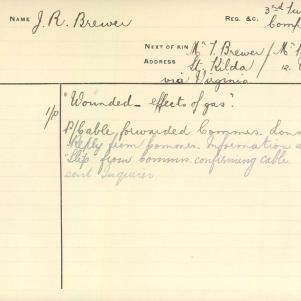 NAME J. R. Brewer
REG. &C. 3rd Tu
Comp
NEXT OF KIN Mr T Brewer / Mr
ADDRESS St. Kilda
via Virginia
1/0 "Wounded – effects of gas".
P/Cable forwarded Commrs. Lon
Reply from Commrs. Information
slip from commrs. confirming cable
sent Inquirer.